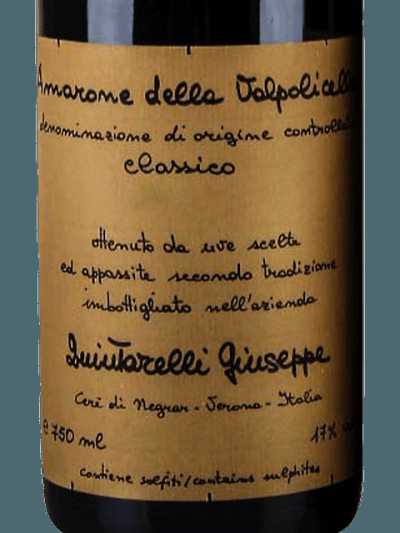 Amarone della Valpolicella
denominazione di origine controllata
classico
ottenuto da uve scelte
ed appassite secondo tradizione
imbottigliato nell'azienda
Quintarelli Giuseppe
Cerè di Negrar - Verona - Italia
e 750 ml 17%
contiene solfiti/contains sulphites